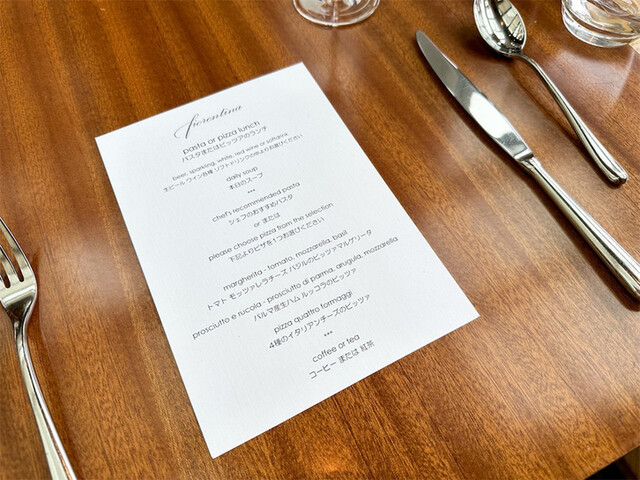 fiorentina
pasta or pizza lunch
パスタまたはピッツアのランチ
beer, sparkling, white, red wine or softdrink
生ビール ワイン各種 ソフトドリンクの中よりお選びください
daily soup
本日のスープ
***
chef's recommended pasta
シェフのおすすめパスタ
or または
please choose pizza from the selection
下記よりピザを1つお選びください
margherita - tomato, mozzarella, basil
トマト モッツァレラチーズ バジルのピッツァマルゲリータ
prosciutto e rucola - prosciutto di parma, arugula, mozzarella
パルマ産生ハム ルッコラのピッツァ
pizza quattro formaggi
4種のイタリアンチーズのピッツァ
***
coffee or tea
コーヒー または 紅茶